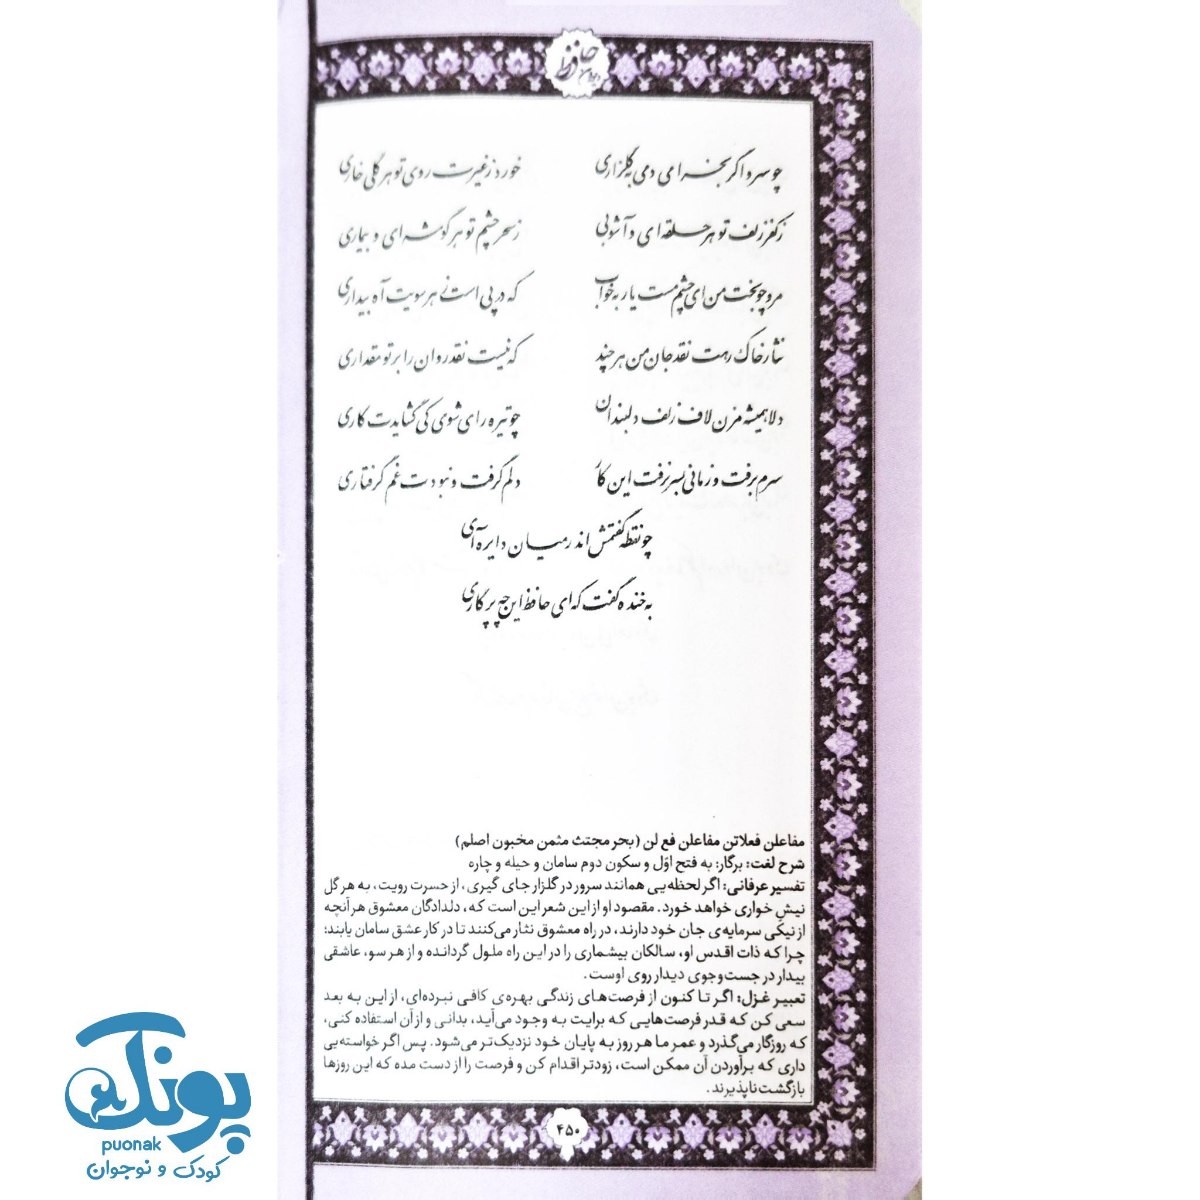 دیوان حافظ
چو سرو اگر بخرامی دمی به گلزاری
خورد ز غیرت روی تو هر گلی خاری
ز کفر زلف تو هر حلقه‌ای و آشوبی
ز سحر چشم تو هر گوشه‌ای و بیماری
مرو چو بخت من ای چشم مست یار به خواب
که در پی است ز هر سویت آه بیداری
نثار خاک رهت نقد جان من هر چند
که نیست نقد روان را بر تو مقداری
دلا همیشه مزن لاف زلف دلبندان
چو تیره رای شوی کی گشایدت کاری
سرم برفت و زمانی بسر نرفت این کار
دلم گرفت و نبودت غم گرفتاری
چو نقطه گفتمش اندر میان دایره آی
به خنده گفت که ای حافظ این چه پرگاری
مفاعلن فعلاتن مفاعلن فع لن (بحر مجتث مثمن مخبون اصلم)
شرح لغت: برگار: به فتح اوّل و سکون دوم سامان و حیله و چاره
تفسیر عرفانی: اگر لحظه‌یی همانند سرور در گلزار جای گیری، از حسرت رویت، به هر گل
نیش خواری خواهد خورد. مقصود او از این شعر این است که، دلدادگان معشوق هر آنچه
از نیکی سرمایه‌ی جان خود دارند، در راه معشوق نثار می‌کنند تا در کار عشق سامان یابند؛
چرا که ذات اقدس او، سالکان بیشماری را در این راه ملول گردانده و از هر سو، عاشقی
بیدار در جست‌وجوی دیدار روی اوست.
تعبیر غزل: اگر تا کنون از فرصت‌های زندگی بهره‌ی کافی نبرده‌ای، از این به بعد
سعی کن که قدر فرصت‌هایی که برایت به وجود می‌آید، بدانی و از آن استفاده کنی،
که روزگار می‌گذرد و عمر ما هر روز به پایان خود نزدیک‌تر می‌شود. پس اگر خواسته‌یی
داری که برآوردن آن ممکن است، زودتر اقدام کن و فرصت را از دست مده که این روزها
بازگشت ناپذیرند.
۴۵۰
پونک
puonak
کودک و نوجوان